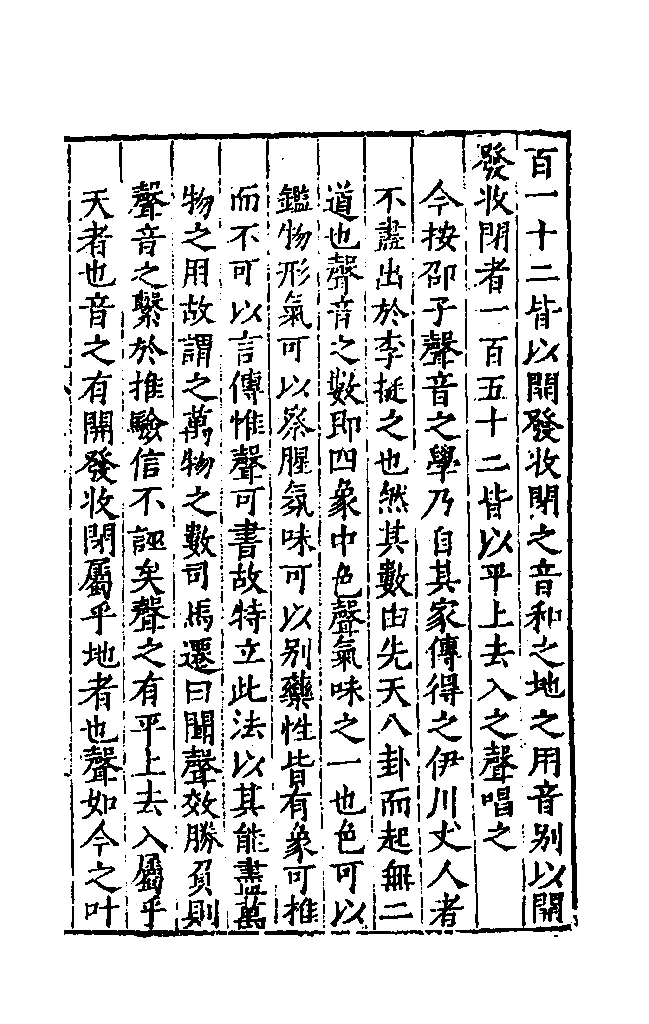 百一十二皆以開發收閉之音和之地之用音別以開
發收閉者一百五十二皆以平上去入之聲唱之
今按邵子聲音之學乃自其家傳得之伊川丈人者
不盡出於李挺之也然其數由先天八卦而起無二
道也聲音之數即四象中色聲氣味之一也色可以
鑑物形氣可以察腥氛味可以別藥性皆有象可推
而不可以言傳惟聲可書故特立此法以其能盡萬
物之用故謂之萬物之數司馬遷曰聞聲效勝負則
聲音之繫於推驗信不誣矣聲之有平上去入屬乎
天者也音之有開發收閉屬乎地者也聲如今之叶